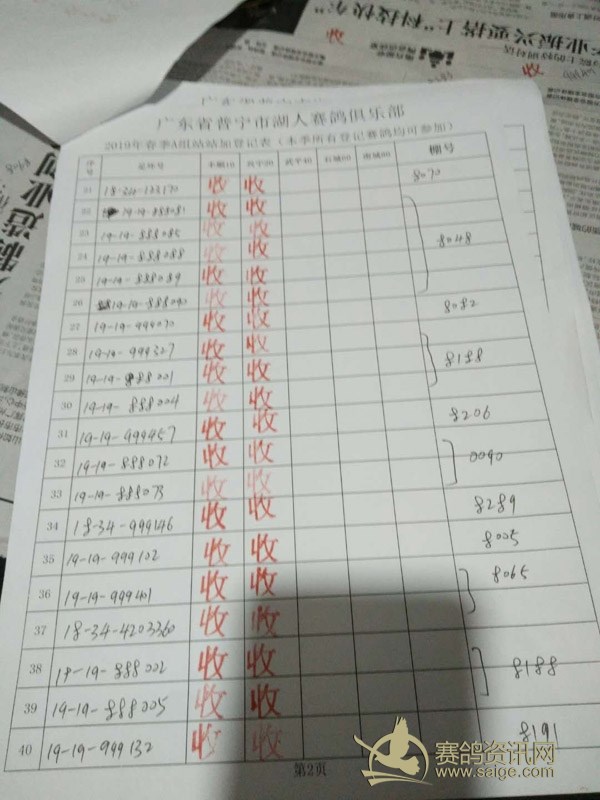 收
广东省普宁市湖人赛鸽俱乐部
2019年春季A组站站加登记表（本季所有登记赛鸽均可参加）
序号 足环号 棚号
21 18-34-123170 收 收 8070
22 19-19-888081 收 收
23 19-19-888085 收 收
24 19-19-888088 收 收 8048
25 19-19-888089 收 收
26 19-19-888090 收 收
27 19-19-999070 收 收 8082
28 19-19-999327 收 收
29 19-19-888001 收 收 8188
30 19-19-888004 收 收
31 19-19-999957 收 收 8206
32 19-19-888072 收 收 0090
33 19-19-888073 收 收
34 18-34-999146 收 收 8289
35 19-19-999102 收 收 8005
36 19-19-999401 收 收 8065
37 18-34-4203360 收 收
38 19-19-888002 收 收 8188
39 19-19-888005 收 收
40 19-19-999132 收 收 8191
第2页
赛鸽资讯网
www.saige.com